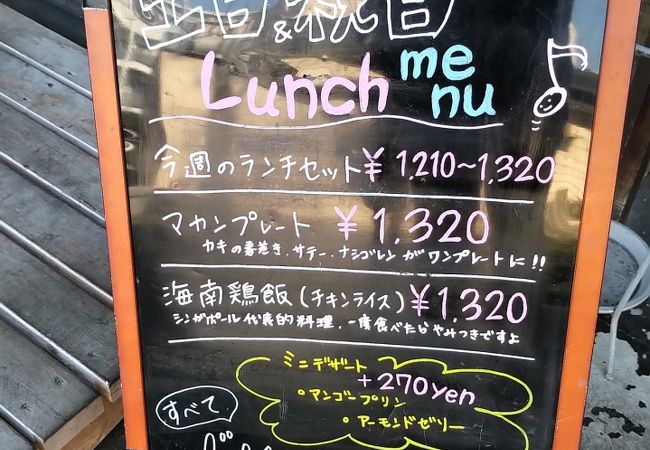 土日&祝日
Lunch menu
今週のランチセット ¥1,210~1,320
マカンプレート ¥1,320
カキの春巻き、サテー、ナシゴレンがワンプレートに!!
海南鶏飯(チキンライス) ¥1,320
シンガポール代表的料理、一度食べたらやみつきですよ
ミニデザート
+270yen
・マンゴープリン
・アーモンドゼリー
すべて